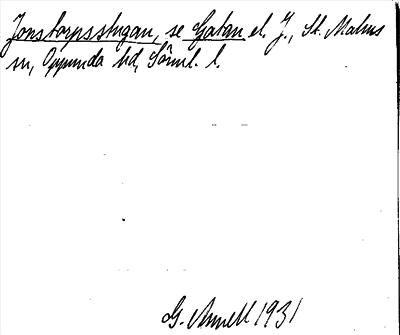 Jonstorpsstugan, se Gatan el. J., St. Malms
sn, Oppunda hd, Söml. l.
G. Annell 1931